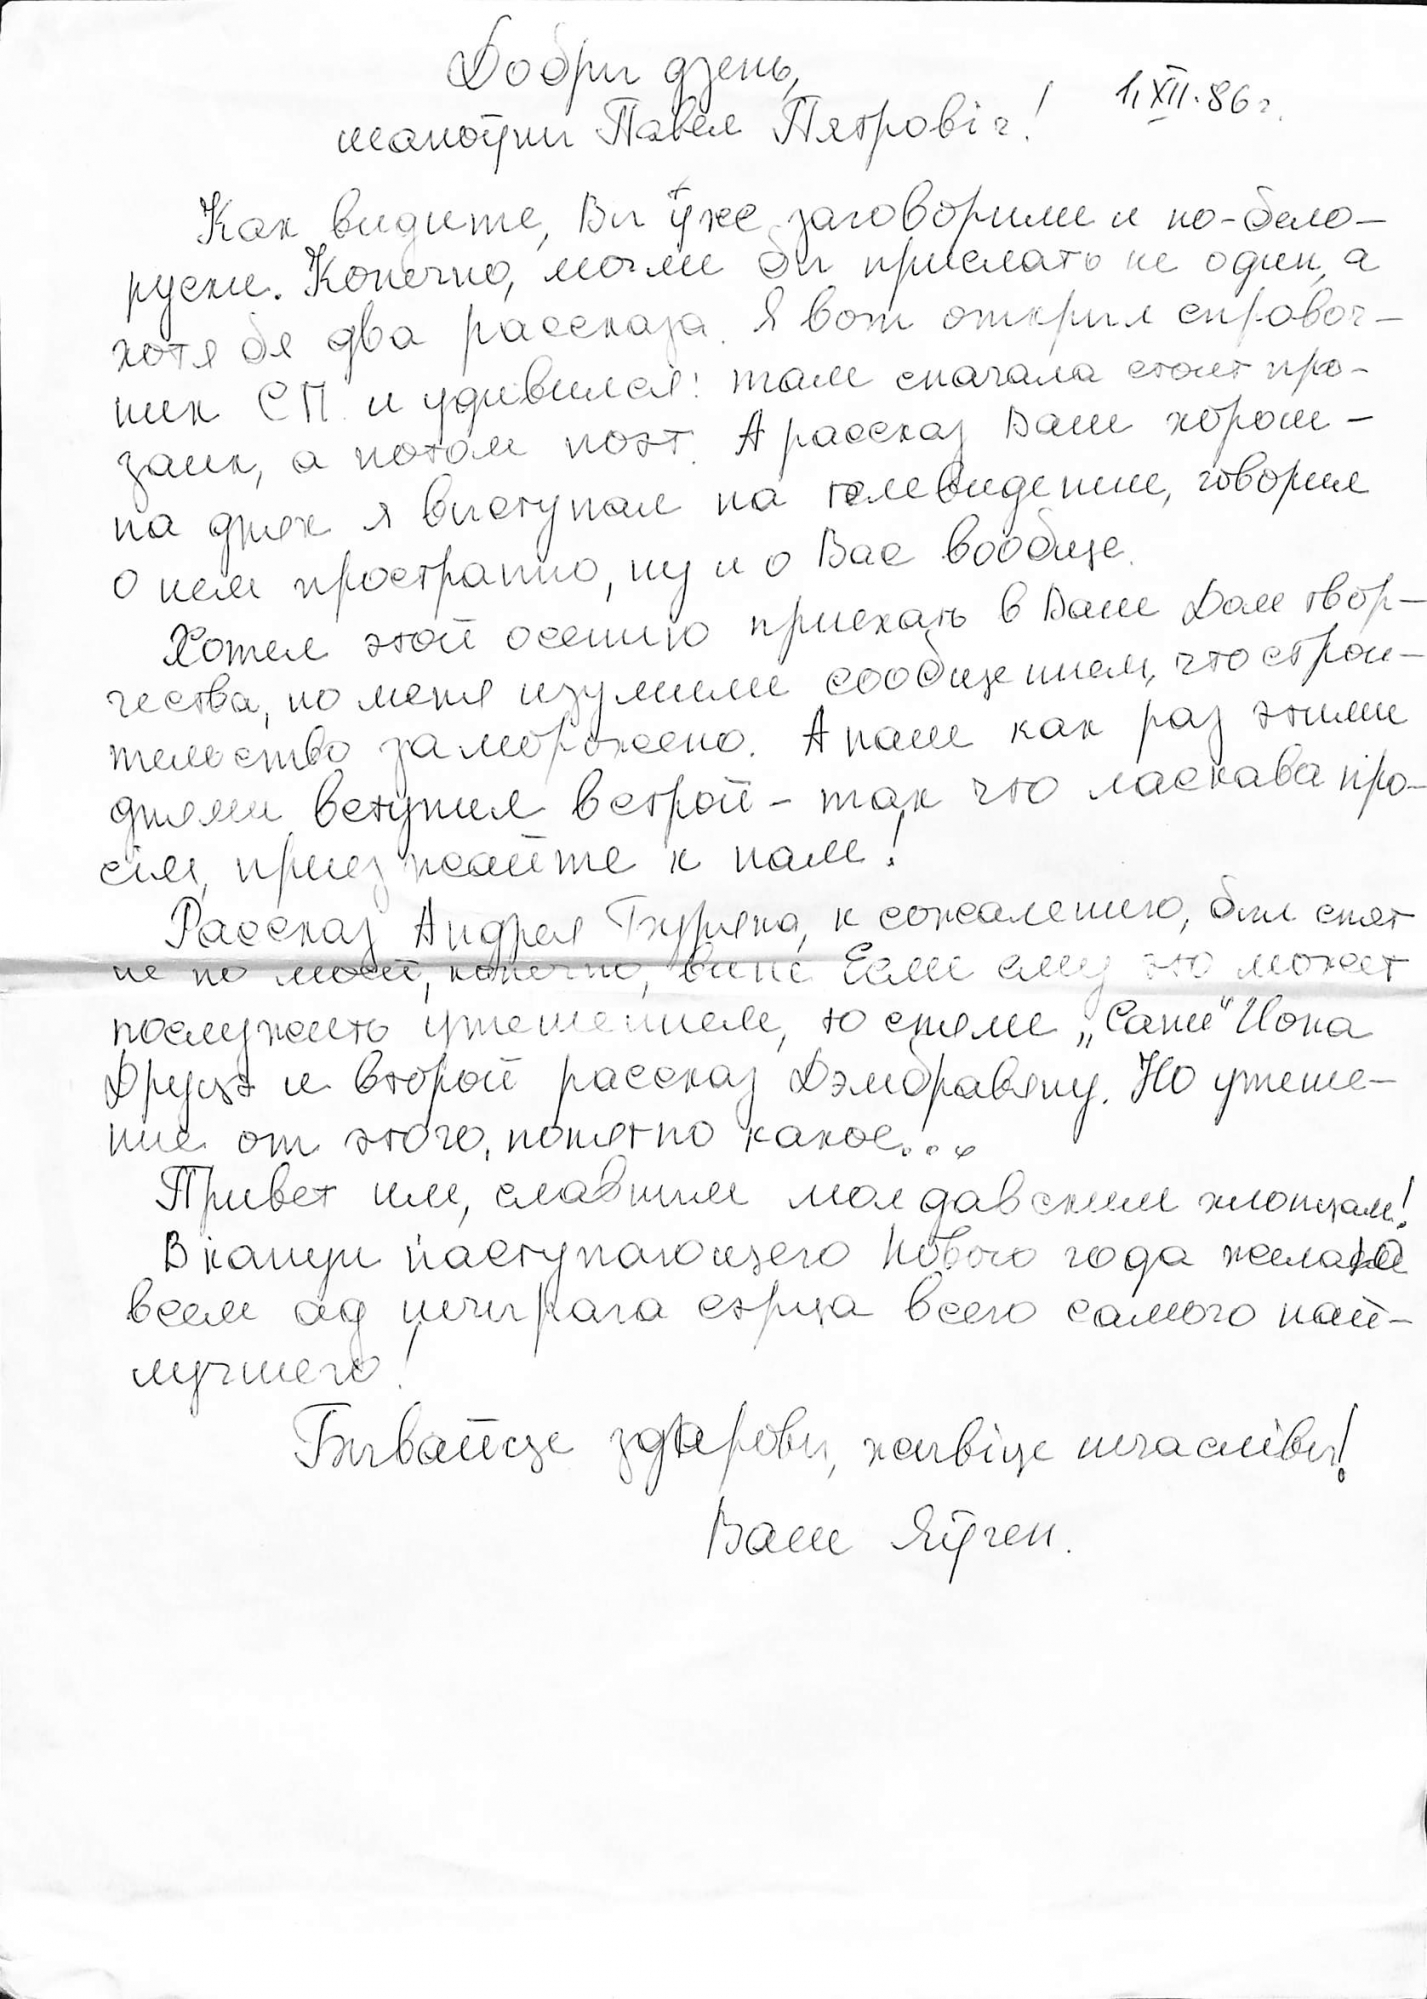 Добры дзень,
шаноўны Павел Пятровіч!
1.XII.86 г.
Как видите, Вы ўже заговорили и по-бело-
русски. Конечно, могли бы прислать не один, а
хотя бы два рассказа. Я вот открыл справоч-
ник СП и удивился: там сначала стоит про-
заик, а потом поэт. А рассказ Ваш хорош –
на днях я выступал на телевидении, говорил
о нем пространно, ну и о Вас вообще.
Хотел этой осенью приехать в Ваш Дом твор-
чества, но меня изумили сообщением, что строи-
тельство заморожено. А наш как раз этими
днями вступил в строй – так что ласкава про-
сім, приезжайте к нам!
Рассказ Андрея Буряка, к сожалению, был снят
не по моей, конечно, вине. Если ему это может
послужить утешением, то сняли „Сани“ Иона
Друцэ и второй рассказ Дэмбравяну. Но утеше-
ние от этого, понятно какое...
Привет им, славным молдавским хлопцам!
В канун наступающего Нового года желаю
всем ад шчырага сэрца всего самого наи-
лучшего!
Бывайце здаровы, жывіце шчасліва!
Ваш Яўген.